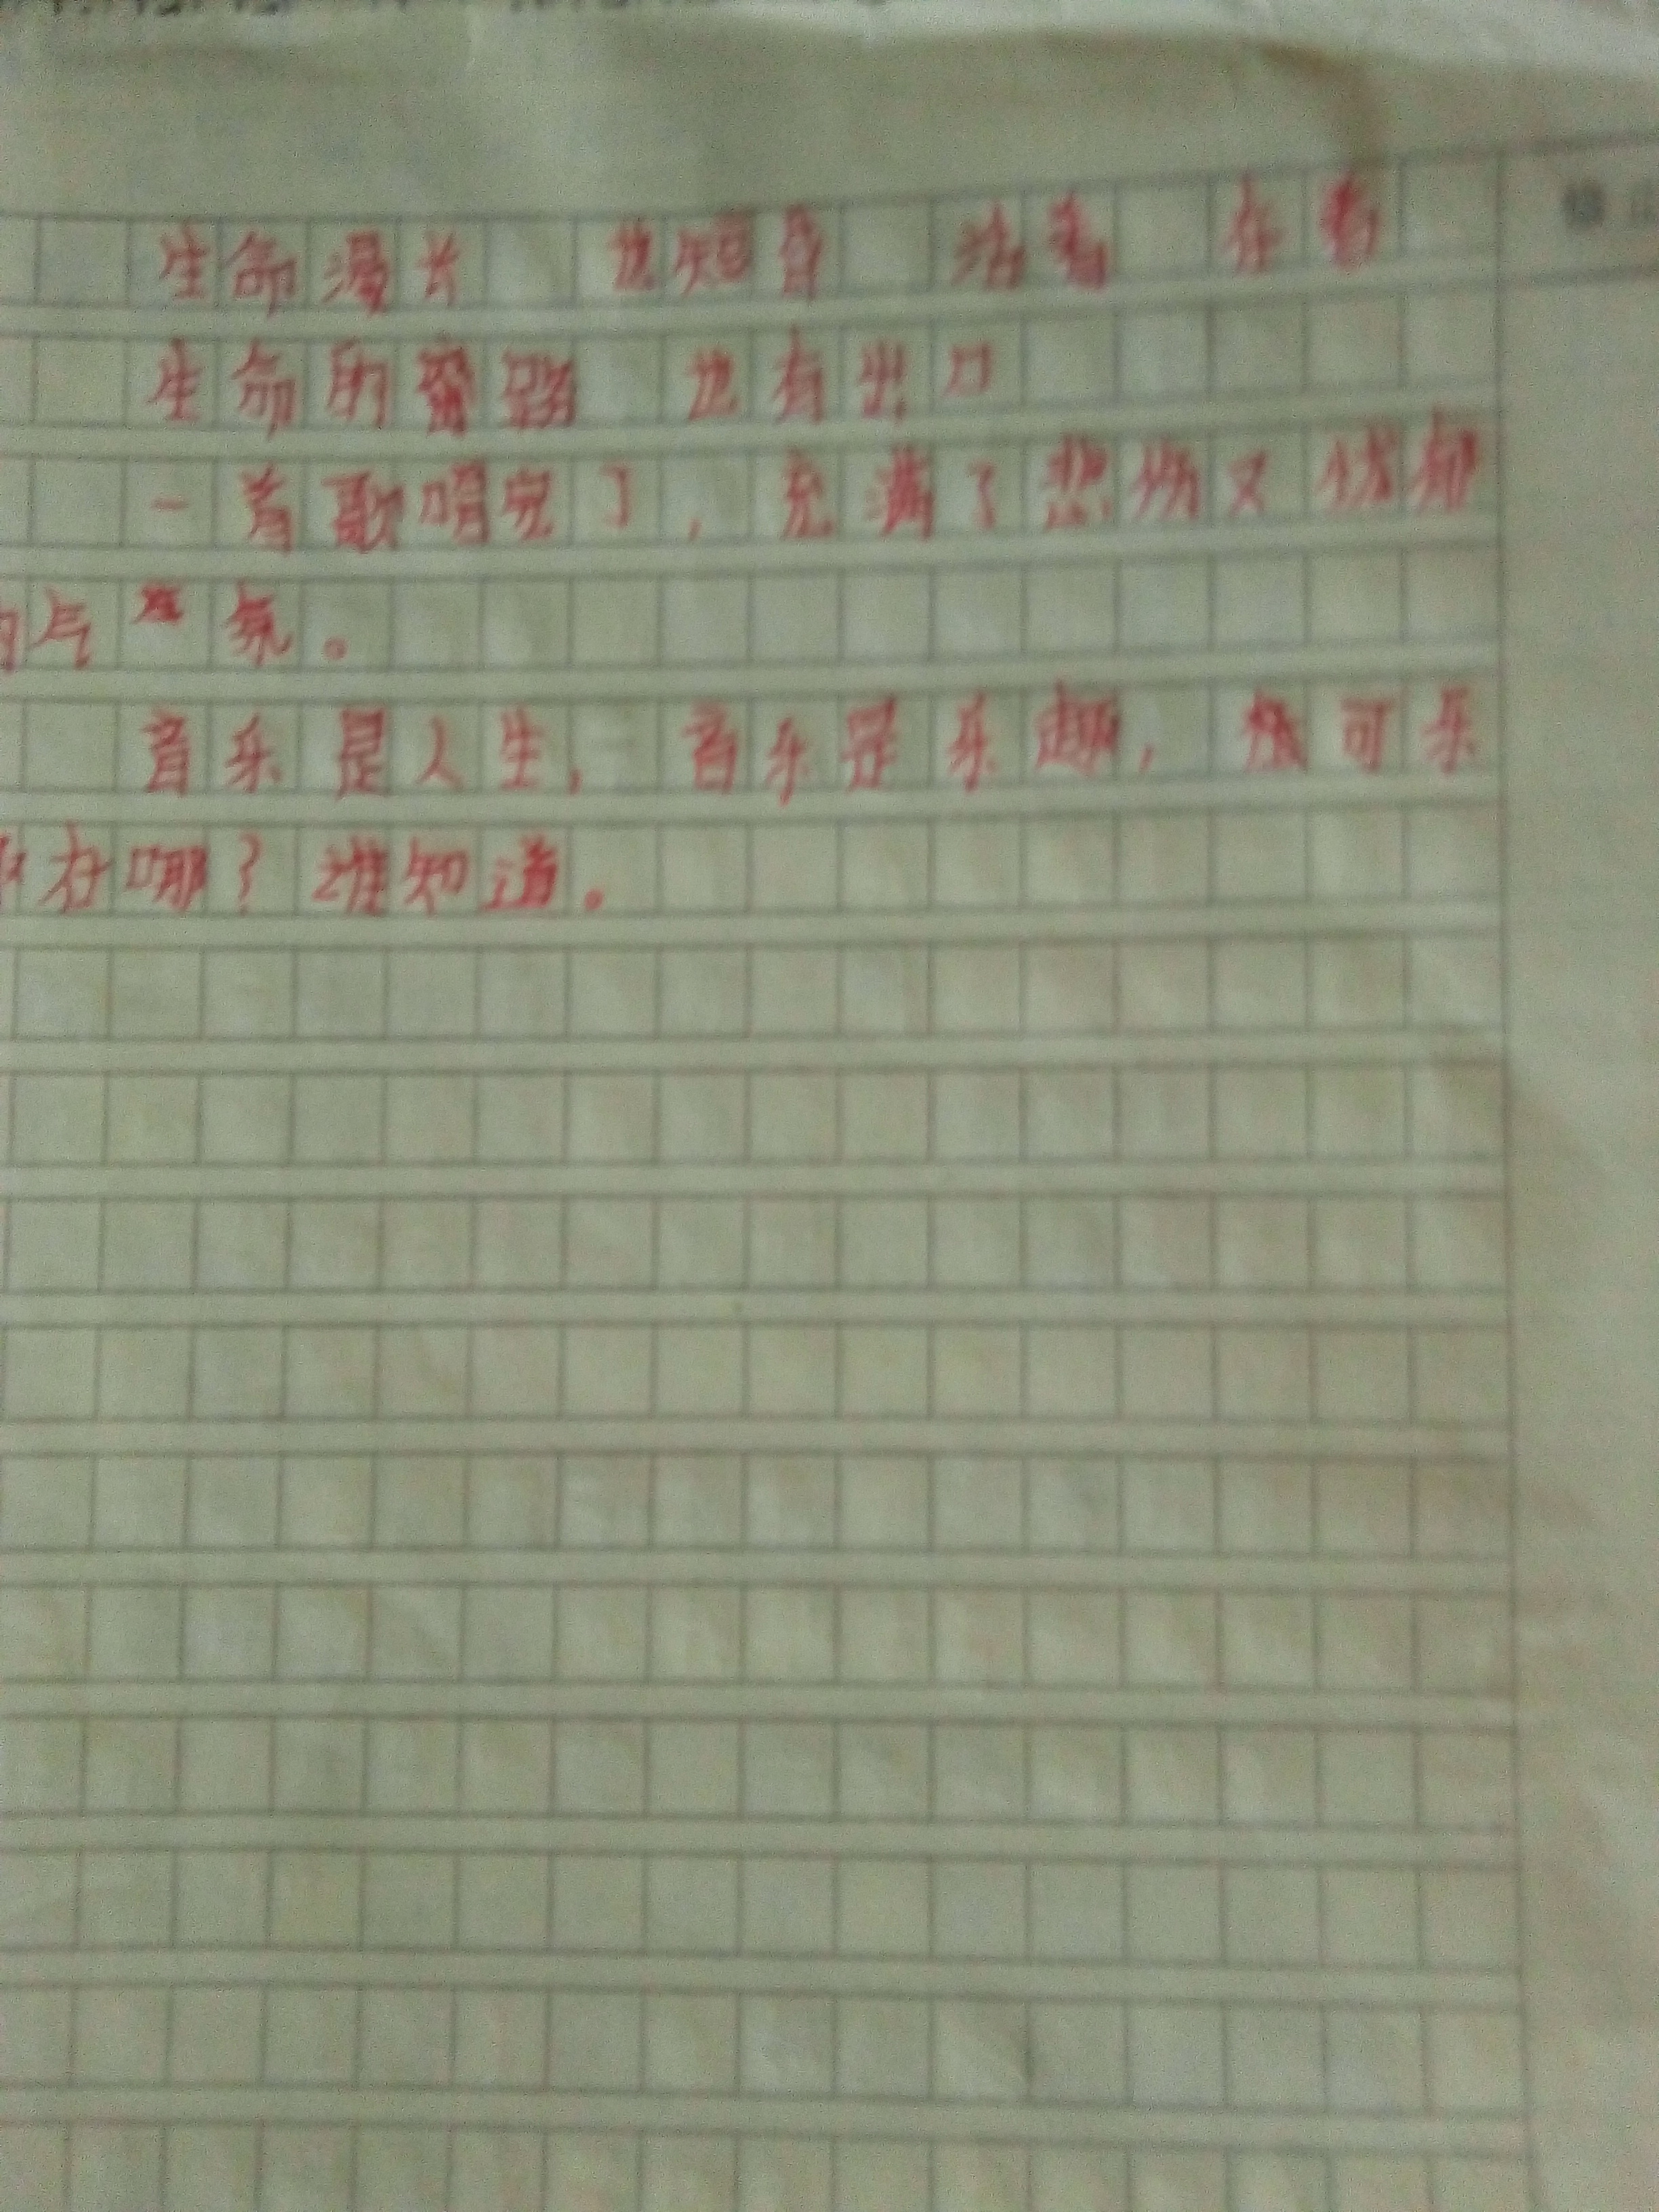 生命漫长 也短暂 活着 在着
生命的齿 也有出口
一首歌唱完了,充满了悲伤又忧郁
的气氛。
音乐是人生,音乐是乐趣,可乐
在哪?谁知道。